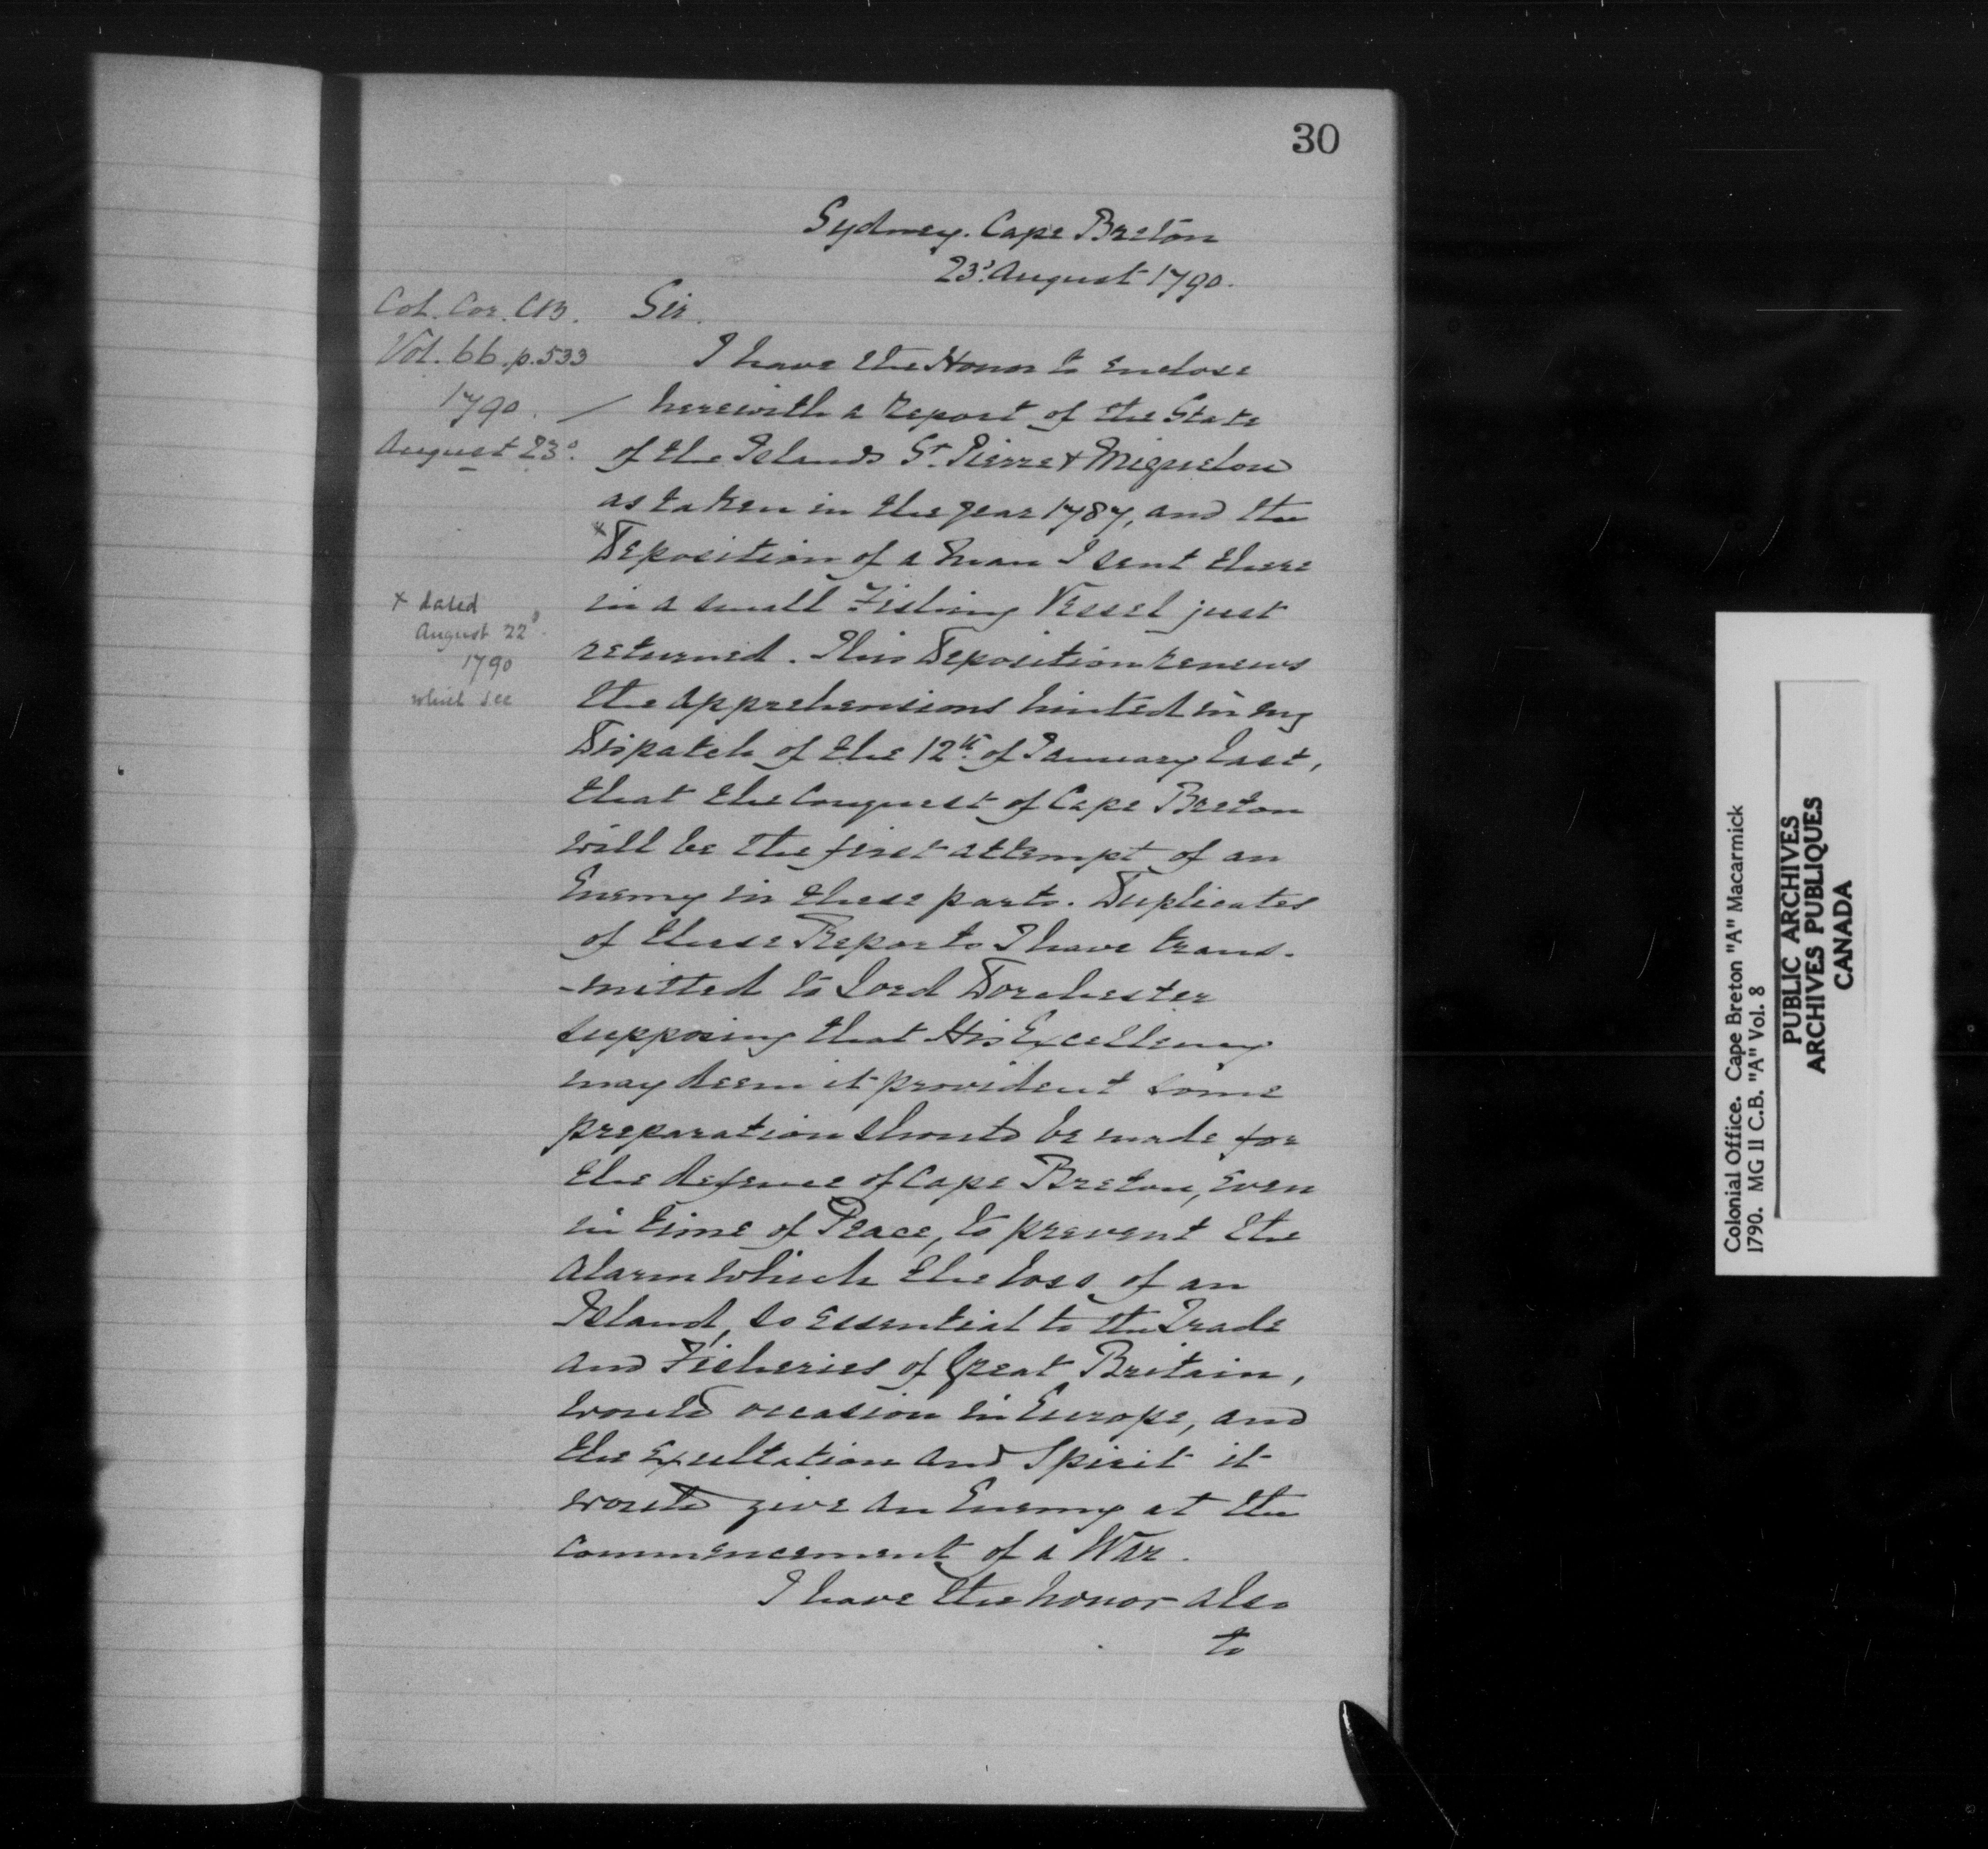 30
Sydney. Cape Breton
23d August 1790.
Col. Cor. C.B.
Vol. 66. p. 533
1790.
August 23d.
Sir.
I have the Honor to enclose
herewith a report of the State
of the Islands St. Pierre & Miquelon
as taken in the year 1787, and the
x Deposition of a man I sent there
in a small Fishing Vessel just
returned. This Deposition renews
x dated
August 22d.
1790
which see
the apprehensions hinted in my
Dispatch of the 12th of January last,
that the Conquest of Cape Breton
will be the first attempt of an
Enemy in these parts. Duplicates
of these Reports I have trans-
-mitted to Lord Dorchester
supposing that His Excellency
may deem it provident some
preparation should be made for
the defence of Cape Breton, even
in time of Peace, to prevent the
alarm which the loss of an
Island, so essential to the Trade
and Fisheries of Great Britain,
would occasion in Europe, and
the Exultation and Spirit it
would give an Enemy at the
commencement of a War.
I have the honor also
to
Colonial Office. Cape Breton "A" Macarmick
1790. MG 11 C.B. "A" Vol. 8
PUBLIC ARCHIVES
ARCHIVES PUBLIQUES
CANADA